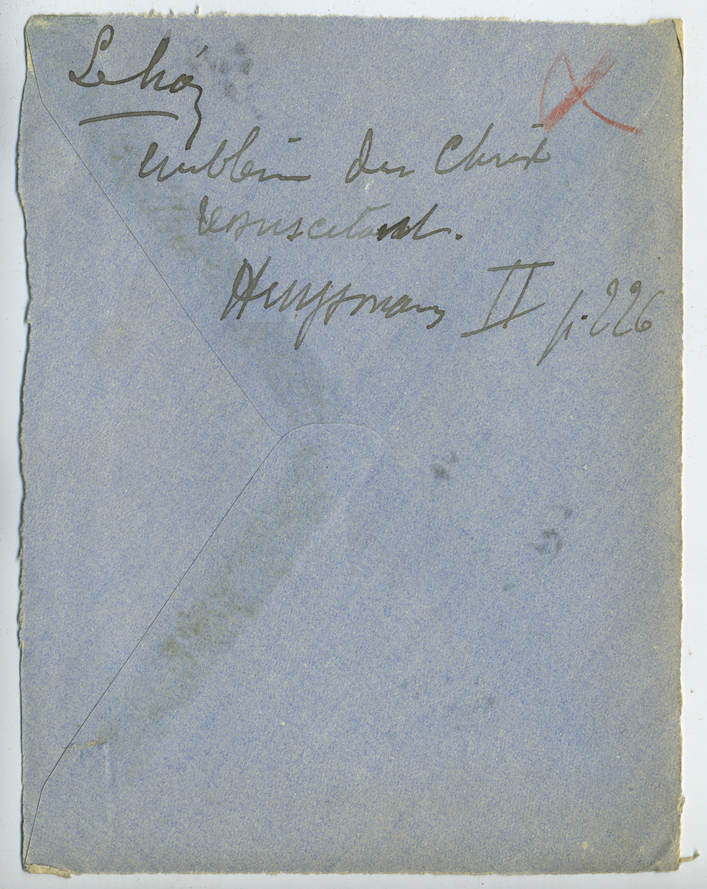 Le lion
emblème du Christ
ressuscitant.
Huysmans II p. 226